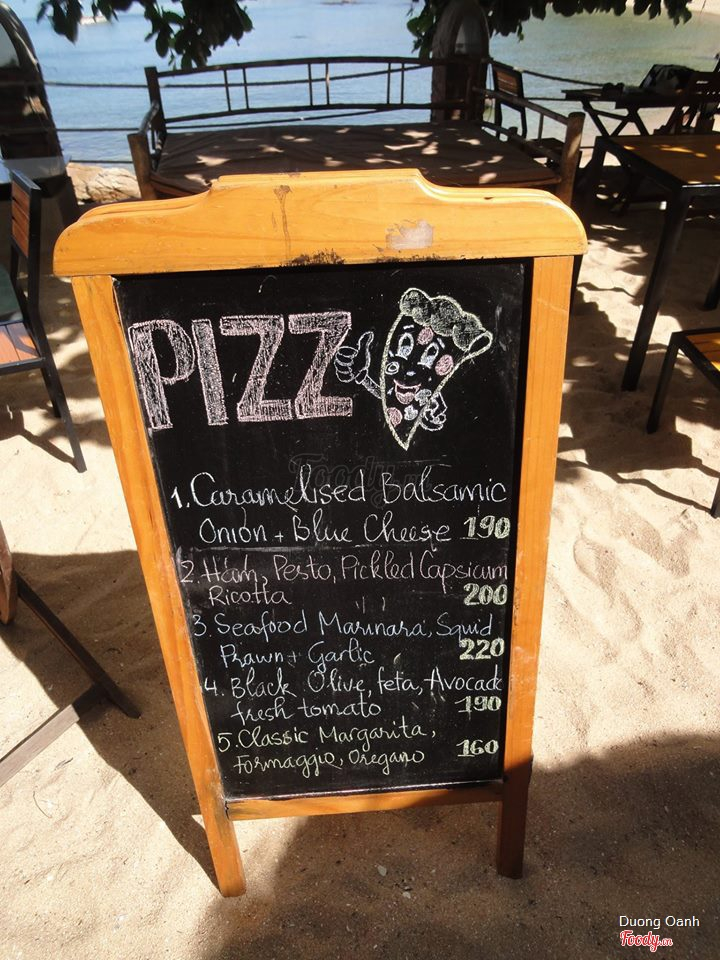 PIZZ
1. Caramelised Balsamic
Onion + Blue Cheese 190
2. Ham, Pesto, Pickled Capsicum
Ricotta 200
3. Seafood Marinara, Squid
Prawn + Garlic 220
4. Black Olive, feta, Avocade
fresh tomato 190
5. Classic Margarita,
Formaggio, Oregano 160
Duong Oanh
Foody.vn